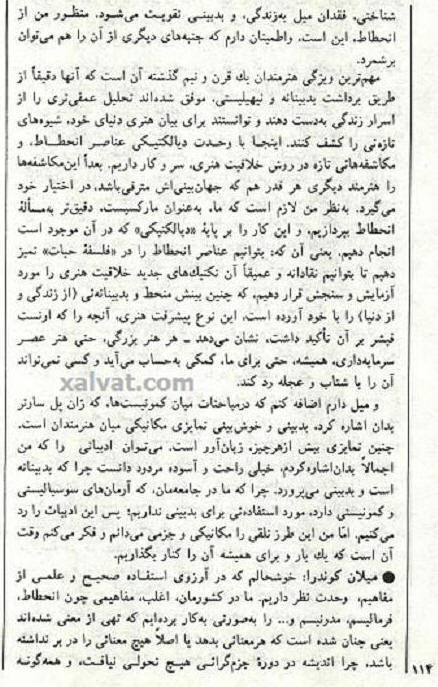 شناختی، فقدان میل به‌زندگی، و بدبینی تقویت می‌شود. منظور من از
انحطاط، این است. واطمینان دارم که جنبه‌های دیگری از آن را هم می‌توان
برشمرد.
مهم‌ترین ویژگی هنرمندان یك قرن و نیم گذشته آن است که آنها دقیقاً از
طریق برداشت بدبینانه و نیهیلیستی، موفق شده‌اند تحلیل عمقی‌تری را از
اسرار زندگی به‌دست دهند و توانستند برای بیان هنری دنیای خود، شیوه‌های
تازه‌ئی را کشف کنند. اینجا با وحدت دیالکتیکی عناصر انحطاط، و
مکاشفه‌هائی تازه در روش خلاقیت هنری، سر و کار داریم. بعداً این‌مکاشفه‌ها
را هنرمند دیگری هر قدر هم که جهان‌بینی‌اش مترقی‌باشد، در اختیار خود
می‌گیرد. به‌نظر من لازم است که ما، به‌عنوان مارکسیست، دقیق‌تر به‌مسألهٔ
انحطاط بپردازیم، و این کار را بر پایهٔ «دیالکتیکی» که در آن موجود است
انجام دهیم. یعنی آن که: بتوانیم عناصر انحطاط را در «فلسفهٔ حیات» تمیز
دهیم تا بتوانیم نقادانه و عمیقاً آن تکنیك‌های جدید خلاقیت هنری را مورد
آزمایش و سنجش قرار دهیم، که چنین بینش منحط و بدبینانه‌ئی (از زندگی و
از دنیا) را با خود آورده است. این نوع پیشرفت هنری، آنچه را که ارنست
فیشر بر آن تأکید داشت، نشان می‌دهد ـ هر هنر بزرگی، حتی هنر عصر
سرمایه‌داری، همیشه، حتی برای ما، کمکی به‌حساب می‌آید و کسی نمی‌تواند
آن را با شتاب و عجله رد کند.
xalvat.com
و میل دارم اضافه کنم که درمباحثات میان کمونیست‌ها، که ژان پل سارتر
بدان اشاره کرد، بدبینی و خوش‌بینی تمایزی مکانیکی میان هنرمندان است.
چنین تمایزی بیش ازهرچیز، زیان‌آور است. می‌توان ادبیاتی را که من
اجمالاً بدان‌اشاره‌کردم، خیلی راحت و آسوده مردود دانست چرا که بدبینانه
است و بدبینی می‌پرورد. چرا که ما در جامعه‌مان، که آرمان‌های سوسیالیستی
و کمونیستی دارد، مورد استفاده‌ئی برای بدبینی نداریم؛ پس این ادبیات را رد
می‌کنیم. اما من این طرز تلقی را مکانیکی و جزمی می‌دانم و فکر می‌کنم وقت
آن است که یك بار و برای همیشه آن را کنار بگذاریم.
● میلان کوندرا: خوشحالم که در آرزوی استفاده صحیح و علمی از
مفاهیم، وحدت نظر داریم. ما در کشورمان، اغلب، مفاهیمی چون انحطاط،
فرمالیسم، مدرنیسم و... را به‌صورتی به‌کار برده‌ایم که تهی از معنی شده‌اند
یعنی چنان شده است که هرمعنائی بدهد یا اصلاً هیچ معنائی را در بر نداشته
باشد. چرا اندیشه در دورهٔ جزم‌گرائی هیچ تحولی نیافت، و همه‌گونه
۱۱۴